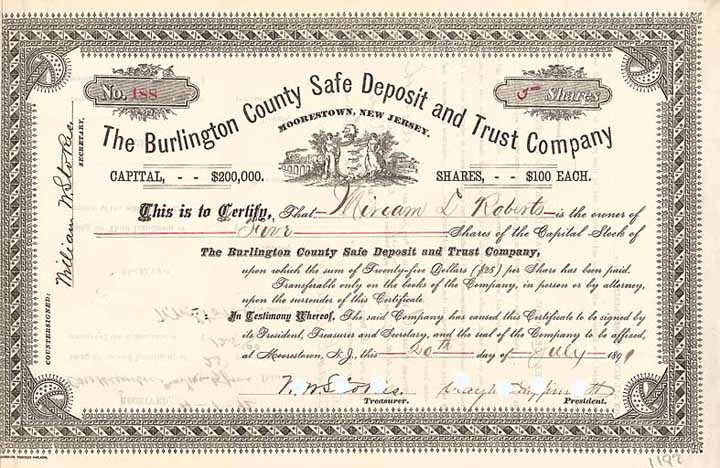 No. 188
5 Shares
The Burlington County Safe Deposit and Trust Company
MOORESTOWN, NEW JERSEY.
CAPITAL, - - $200,000.
SHARES, - - $100 EACH.
This is to Certify, That Miriam L. Roberts is the owner of
Five Shares of the Capital Stock of
The Burlington County Safe Deposit and Trust Company,
upon which the sum of Twenty-five Dollars ($25) per Share has been paid.
Transferable only on the books of the Company, in person or by attorney,
upon the surrender of this Certificate.
In Testimony Whereof, The said Company has caused this Certificate to be signed by
its President, Treasurer and Secretary, and the seal of the Company to be affixed,
at Moorestown, N.J., this 20th day of July 1891
N. W. Stokes.
Treasurer.
President.
COUNTERSIGNED: William W. Stokes. SECRETARY.